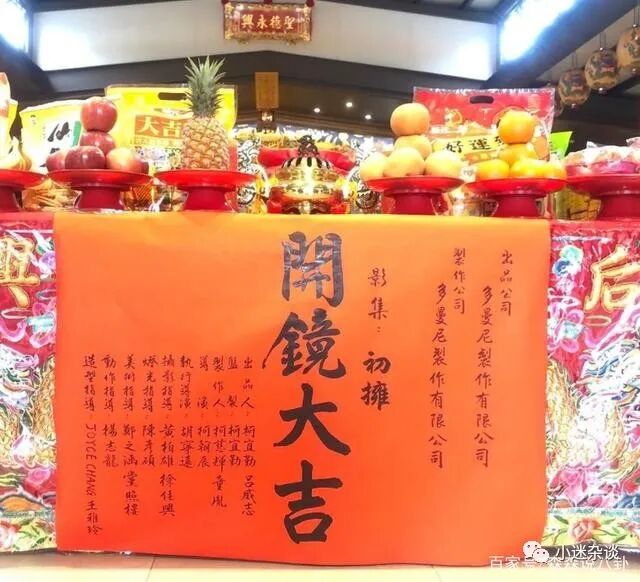 聖德永興
大吉
好運
后
興
出品公司
多曼尼製作有限公司
製作公司
多曼尼製作有限公司
影集：初擁
開鏡大吉
出品人：柯宜勤 呂威志
監製：柯宜勤
製作人：柯慧輝 童胤
導演：柯翰辰
執行導演：胡寧遠
攝影指導：黃柏雄 徐佳興
燈光指導：陳彥碩
美術指導：鄭之涵 黨照樓
動作指導：楊志龍
造型指導：JOYCE CHANG 王雅玲
小迷杂谈
百家号
说八卦